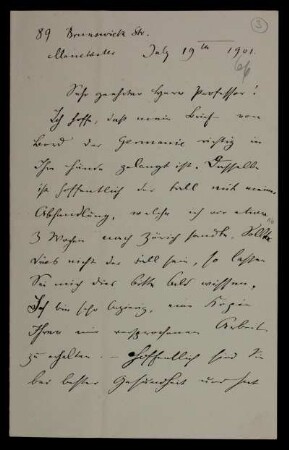 89 Brunswick Str.
3
Manchester July 19th 1901.
Sehr geehrter Herr Professor!
Ich hoffe, dass mein Brief von
Bord der Germanic richtig in
Ihre Hände gelangt ist. Dasselbe
ist hoffentlich der Fall mit meiner
Abhandlung, welche ich vor etwa
3 Wochen nach Zürich sandte. Sollte
dies nicht der Fall sein, so lassen
Sie mich dies bitte bald wissen.
Ich bin sehr begierig, eine Kopie
Ihrer versprochenen Arbeit
zu erhalten. – Hoffentlich sind Sie
bei bester Gesundheit und hat